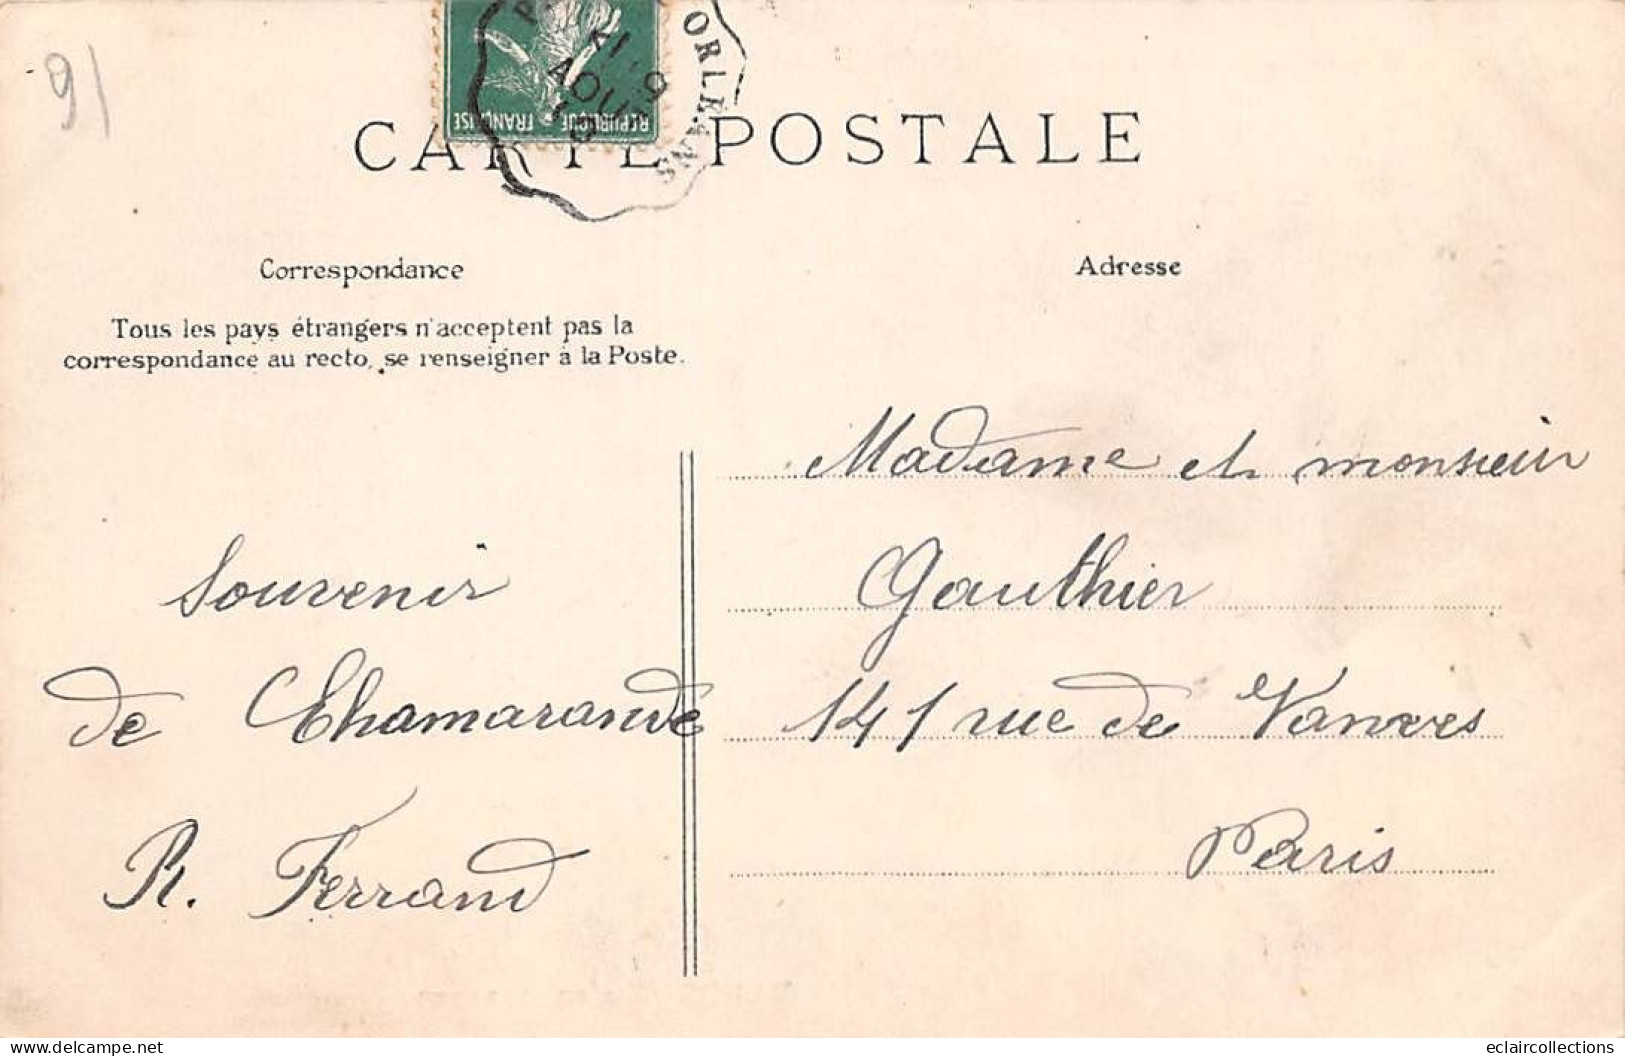 91
ORLEANS
AOUT
RÉPUBLIQUE FRANÇAISE
CARTE POSTALE
Correspondance
Tous les pays étrangers n'acceptent pas la
correspondance au recto, se renseigner à la Poste.
Adresse
Souvenir
de Chamarande
R. Ferrand
Madame et monsieur
Gauthier
141 rue de Vanves
Paris
www.delcampe.net
eclaircollections